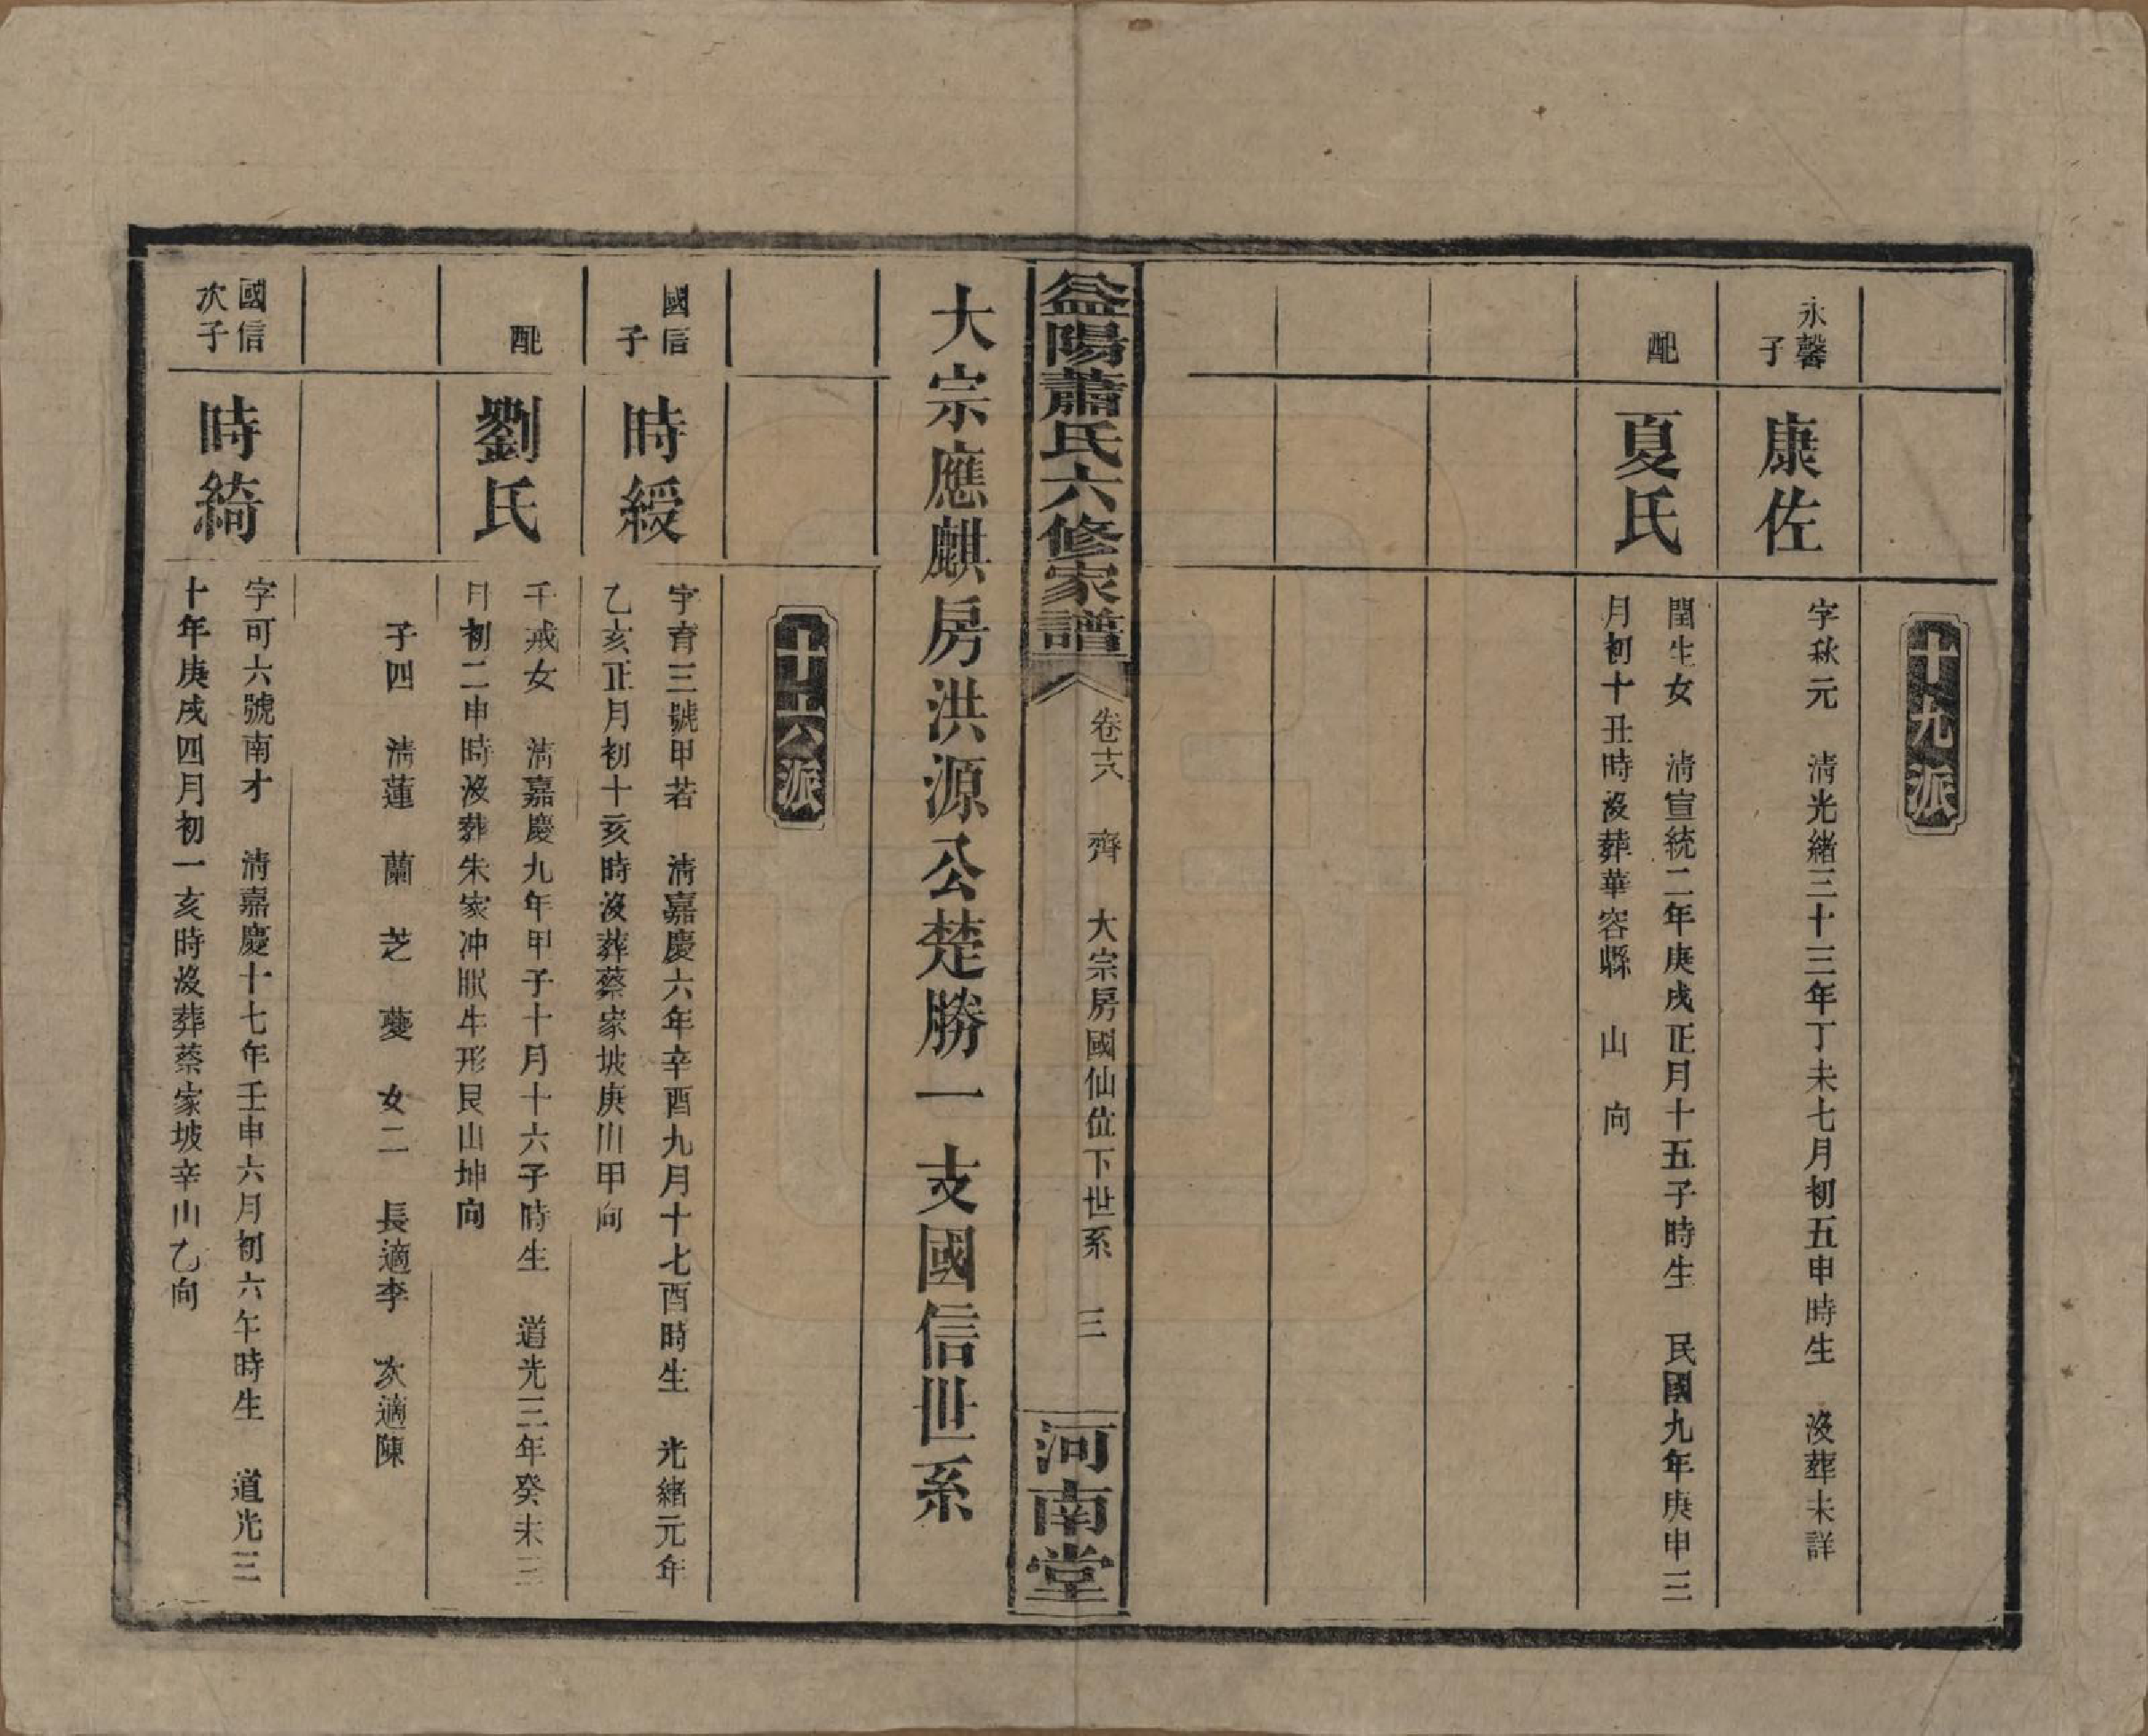 十九派
永馨
子
康佐
字秋元　淸光緒三十三年丁未七月初五申時生　沒葬未詳
配
夏氏
閏生女　淸宣統二年庚戌正月十五子時生　民國九年庚申三
月初十丑時沒葬華容縣　山　向
益陽蕭氏六修家譜
卷十八　齊　大宗房國仙位下世系　三
河南堂
大宗應麒房洪源公楚勝一支國信世系
十六派
國信
子
時綬
字育三號甲若　淸嘉慶六年辛酉九月十七酉時生　光緒元年
乙亥正月初十亥時沒葬蔡家坡庚山甲向
配
劉氏
千戒女　淸嘉慶九年甲子十月十六子時生　道光三年癸未三
月初二申時沒葬朱家冲眠牛形艮山坤向
子四　淸蓮　蘭　芝　蔆　女二　長適李　次適陳
國信
次子
時綺
字可六號南才　淸嘉慶十七年壬申六月初六午時生　道光三
十年庚戌四月初一亥時沒葬蔡家坡辛山乙向